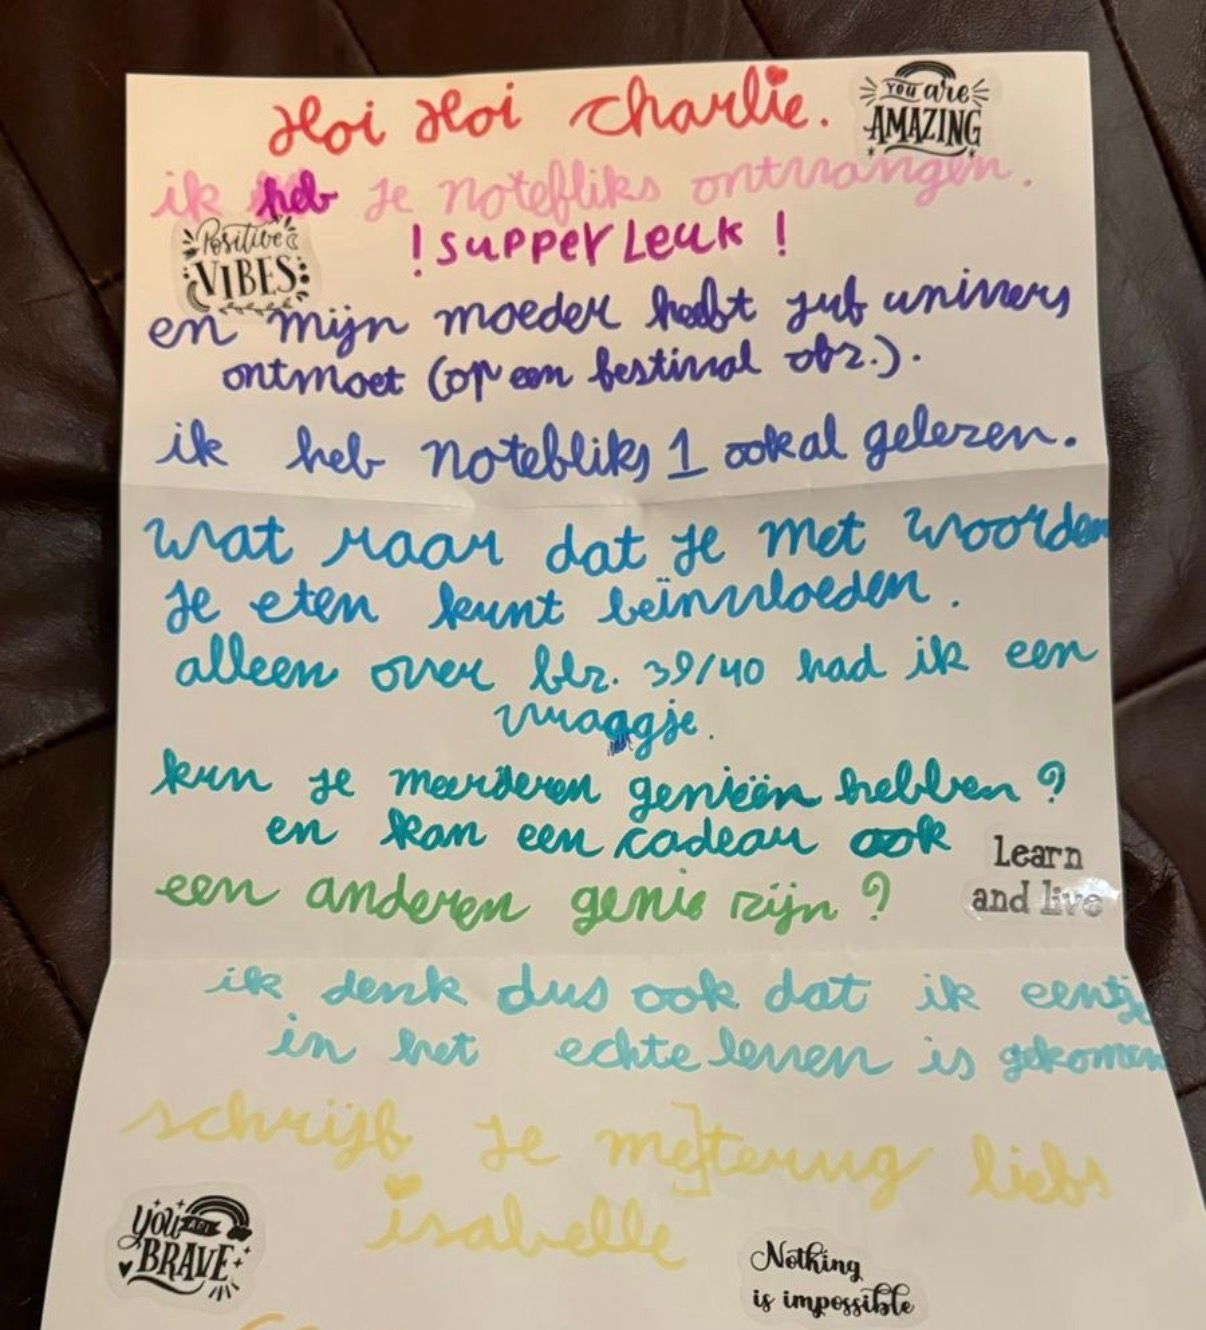 Hoi Hoi Charlie.
You are
AMAZING
ik heb je notefliks ontvangen.
Positive
VIBES
! supper Leuk !
en mijn moeder heeft juf univers
ontmoet (op een festival ofz.).
ik heb notefliks 1 ook al gelezen.
wat raar dat je met woorden
je eten kunt beïnvloeden.
alleen over blz. 39/40 had ik een
vraagje.
kun je meerderen genieën hebben?
en kan een cadeau ook
Learn
and live
een anderen genie zijn?
ik denk dus ook dat ik eentje
in het echte leven is gekomen
schrijf je me terug liefs
isabelle
you are
BRAVE
Nothing
is impossible